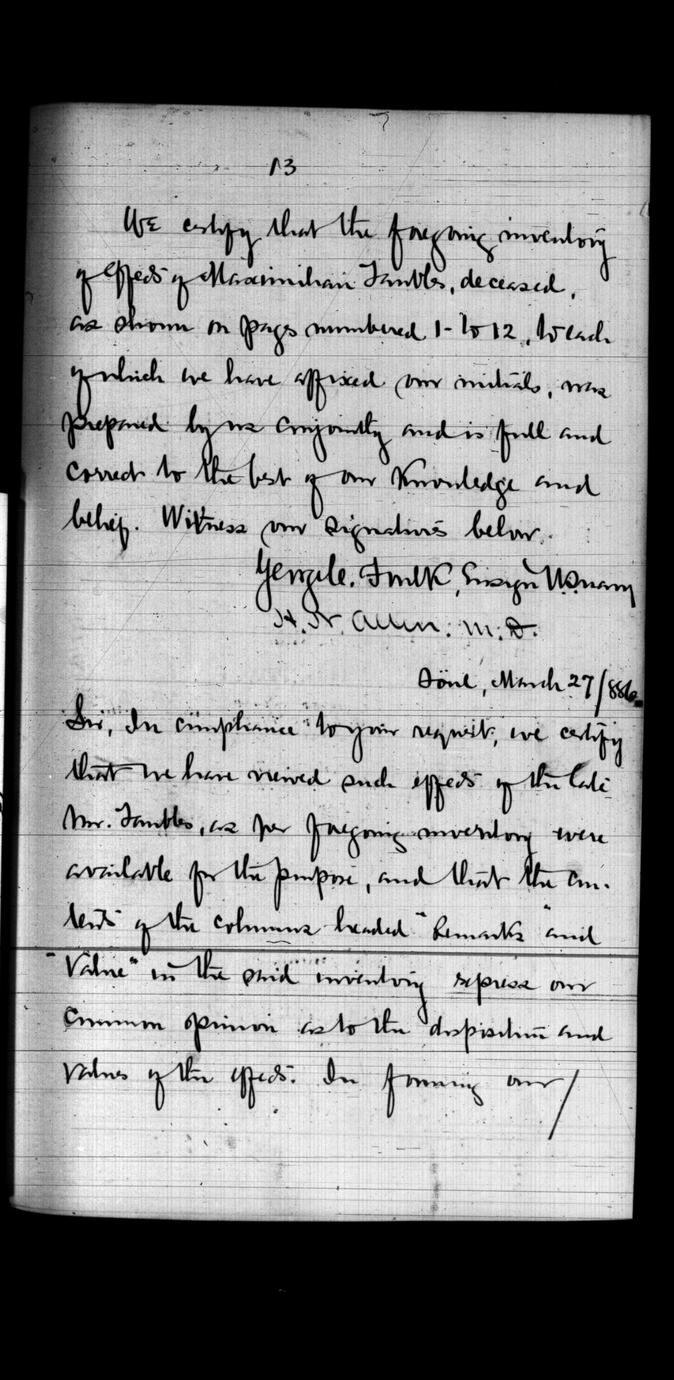 13
We certify that the foregoing inventory
of effects of Maximilian Taubles, deceased,
as shown on pages numbered 1- to 12, to each
of which we have affixed our initials, was
prepared by us conjointly and is full and
correct to the best of our Knowledge and
belief. Witness our signatures below.
George C. Foulk, Ensign U.S. navy
H. N. Allen. M. D.
Söul, March 27/886.
Sir, In compliance to your request, we certify
that we have viewed such effects of the late
Mr. Taubles, as per foregoing inventory were
available for the purpose, and that the con-
tents of the columns headed "Remarks" and
"Value" in the said inventory express our
common opinion as to the disposition and
values of the effects. In forming our/